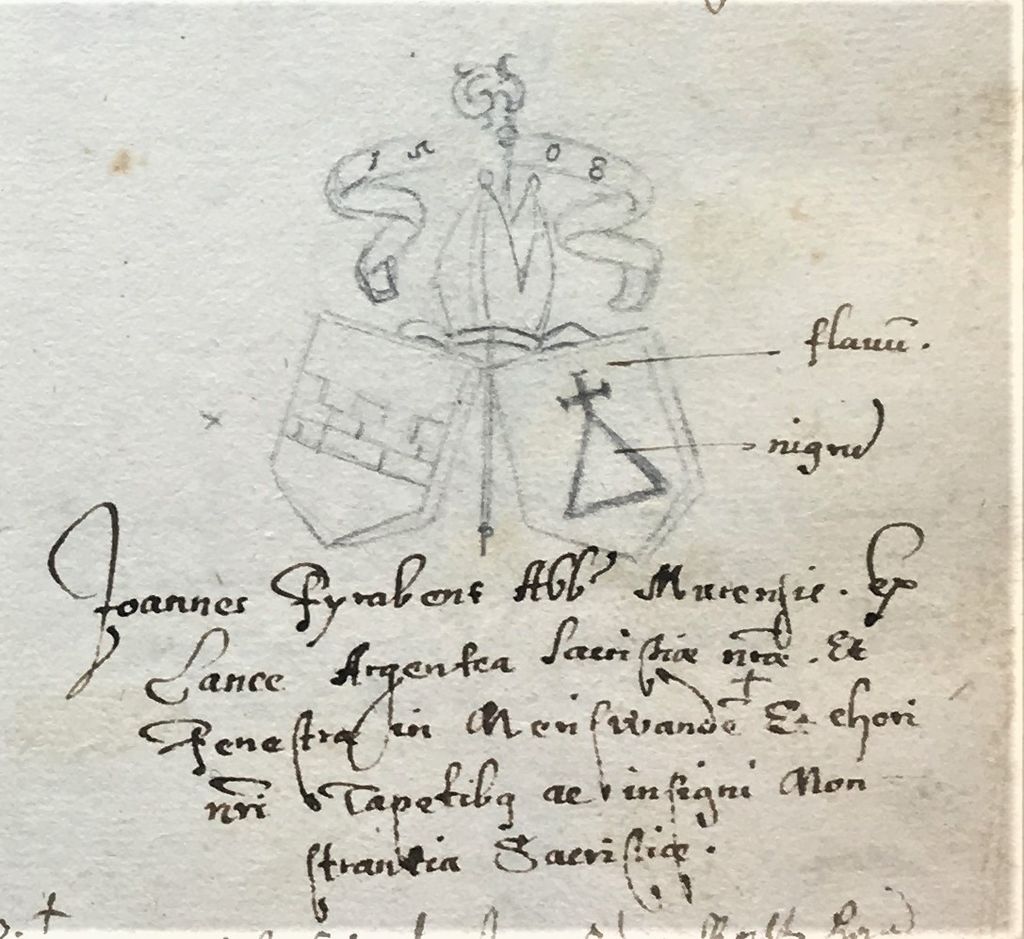 15 08
flauū.
nigrū
Joannes Fyrabent Abb⁹ Murensis. ex
Lance Argentea Sacristiæ nr̄æ. Et
Fenestra in Meriswandē Et chori
nr̄i Tapetibꝫ ac insigni Mon
strantia Sacristiæ.